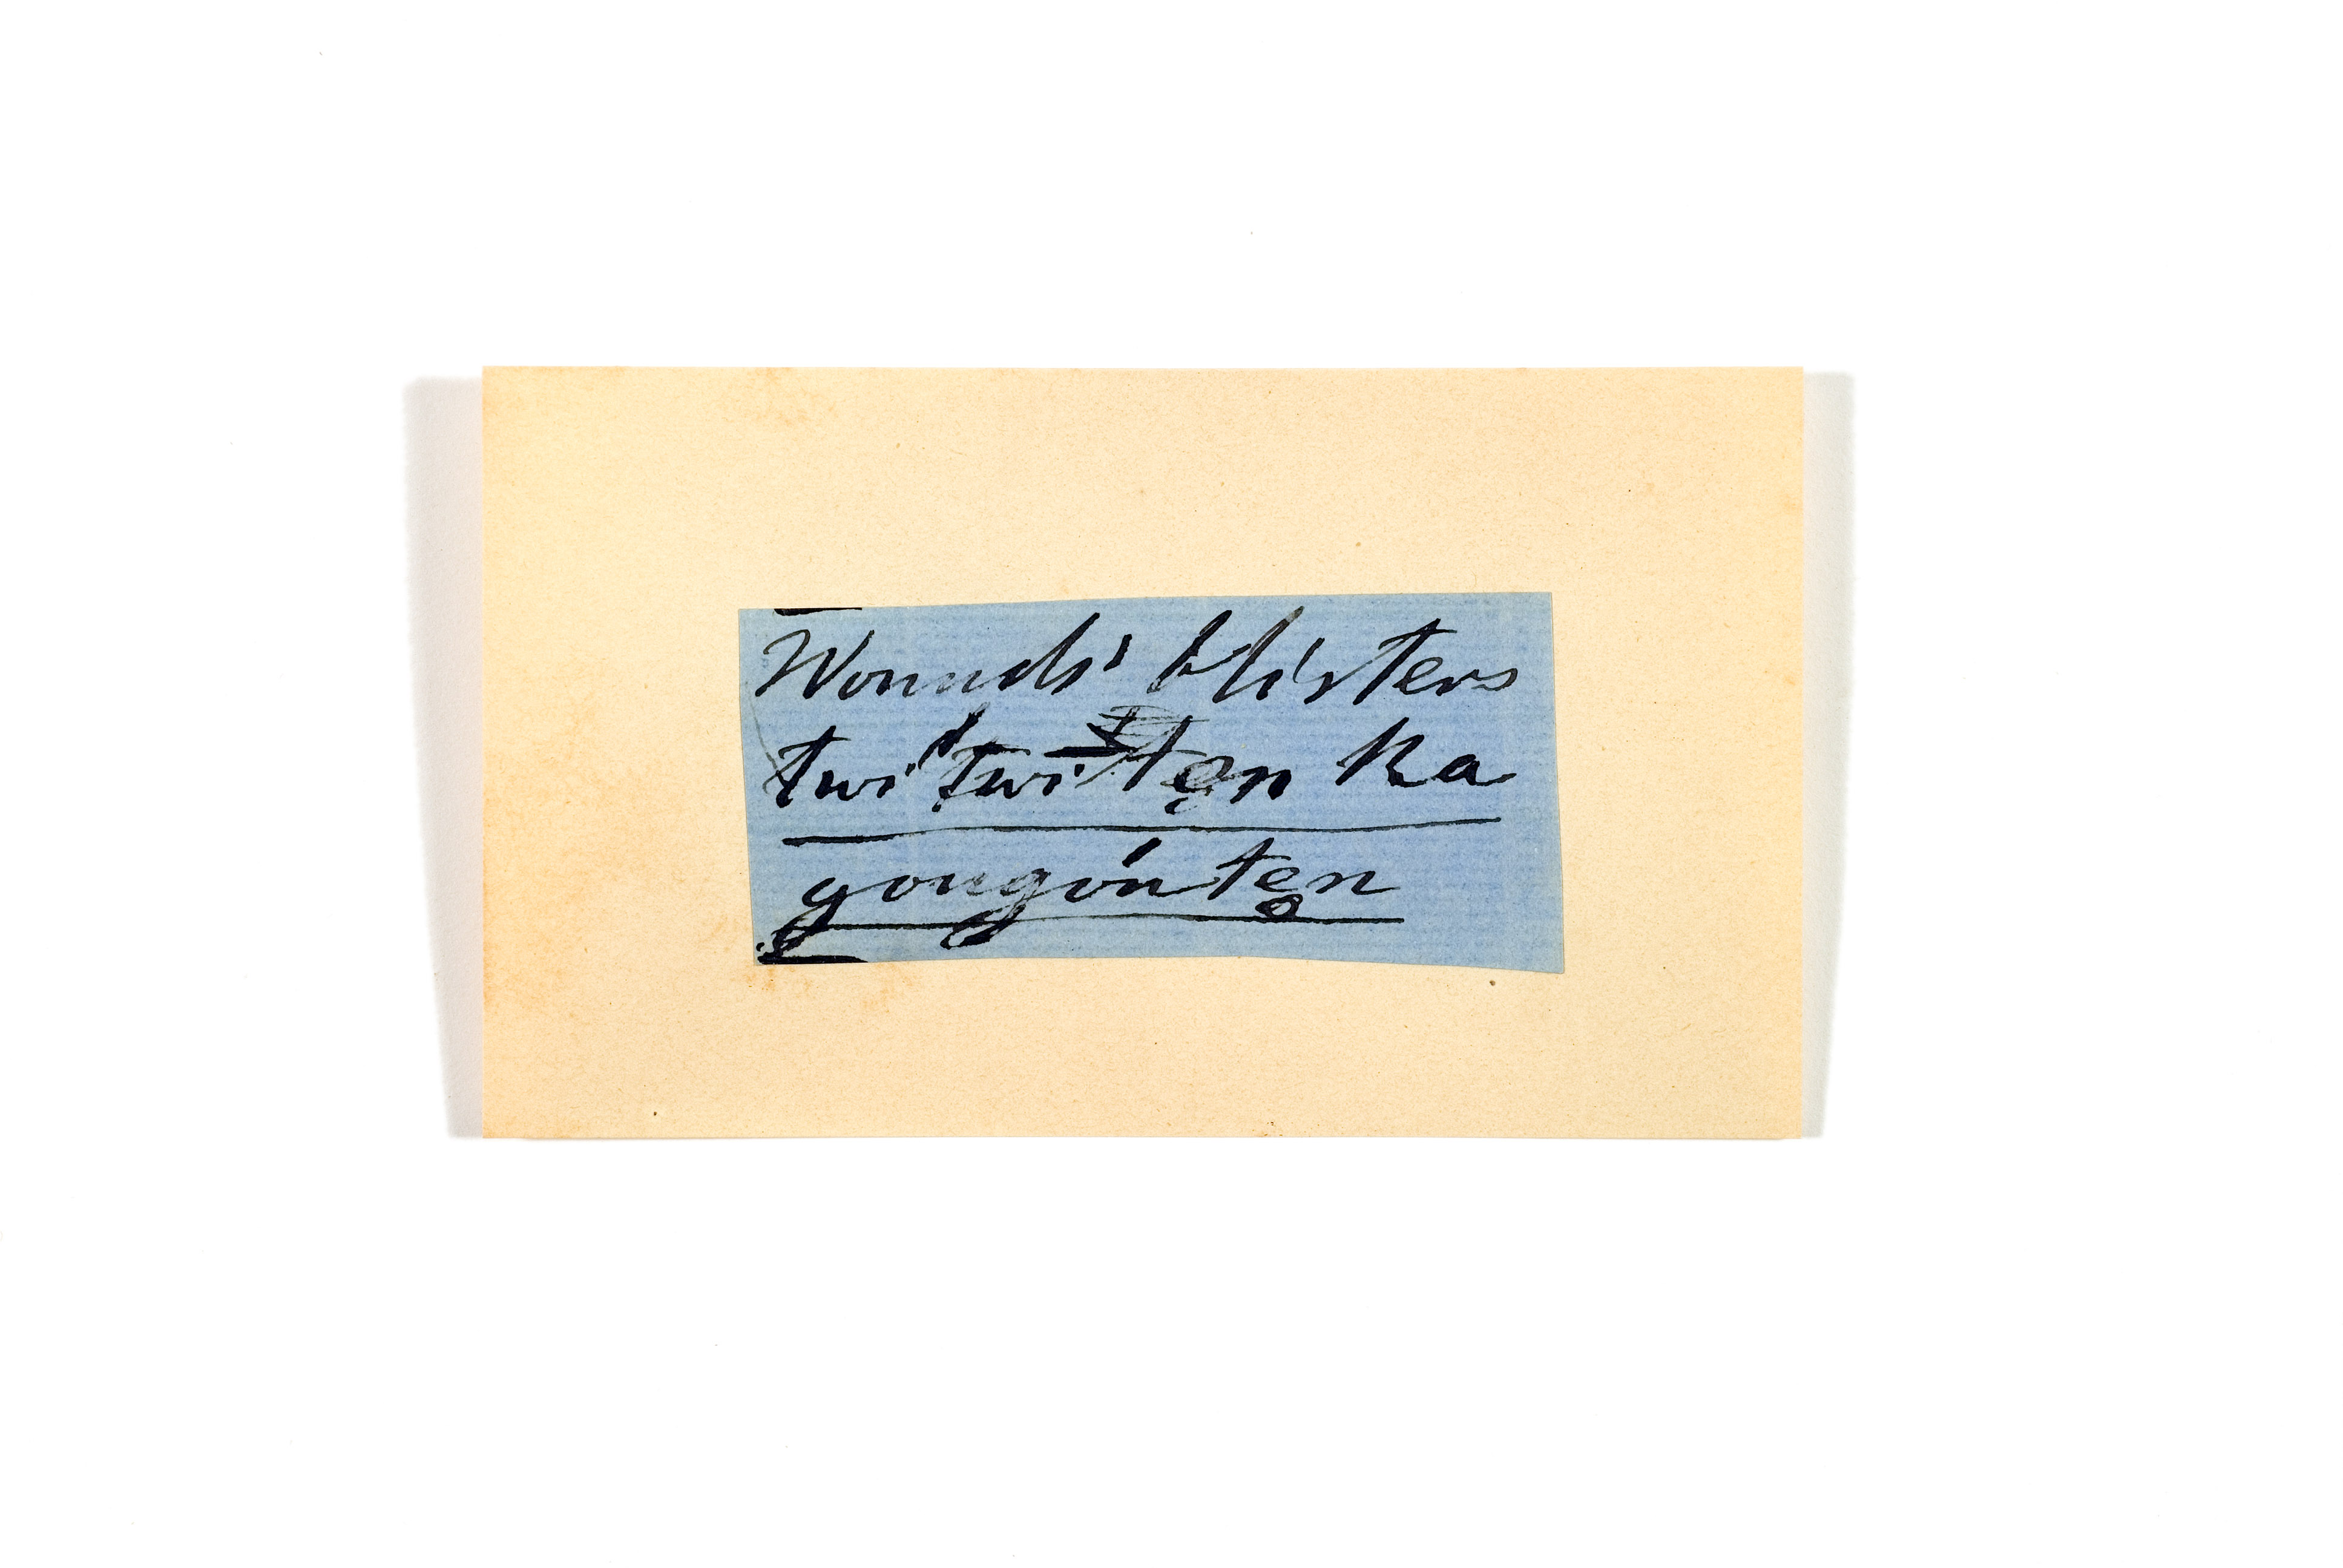 Wounds' blisters
twi'twi'tęn ka
gongóntęn